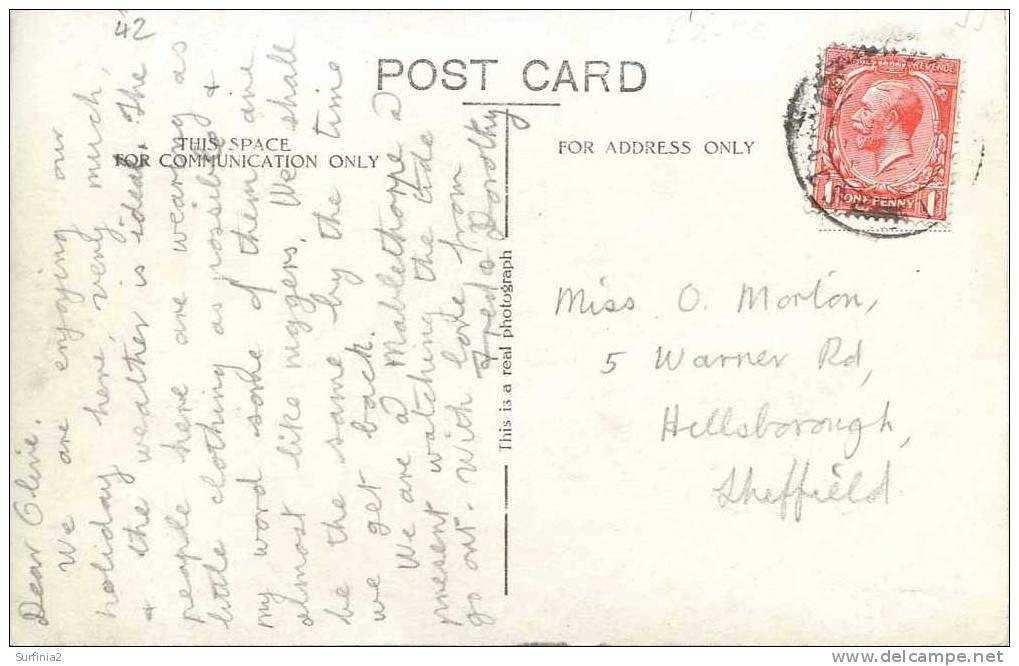 42
POST CARD
THIS SPACE
FOR COMMUNICATION ONLY
FOR ADDRESS ONLY
Dear Olive.
We are enjoying our
holiday here, very much,
& the weather is ideal. The
people here are wearing as
little clothing as possible, &
my word some of them are
almost like niggers. We shall
be the same by the time
we get back.
We are at Mablethorpe at
present watching the tide
go out. With love from
Fred & Dorothy
This is a real photograph
REVENUE
1 ONE PENNY 1
Miss O. Morton,
5 Warner Rd,
Hellsborough,
Sheffield.
Surfinia2